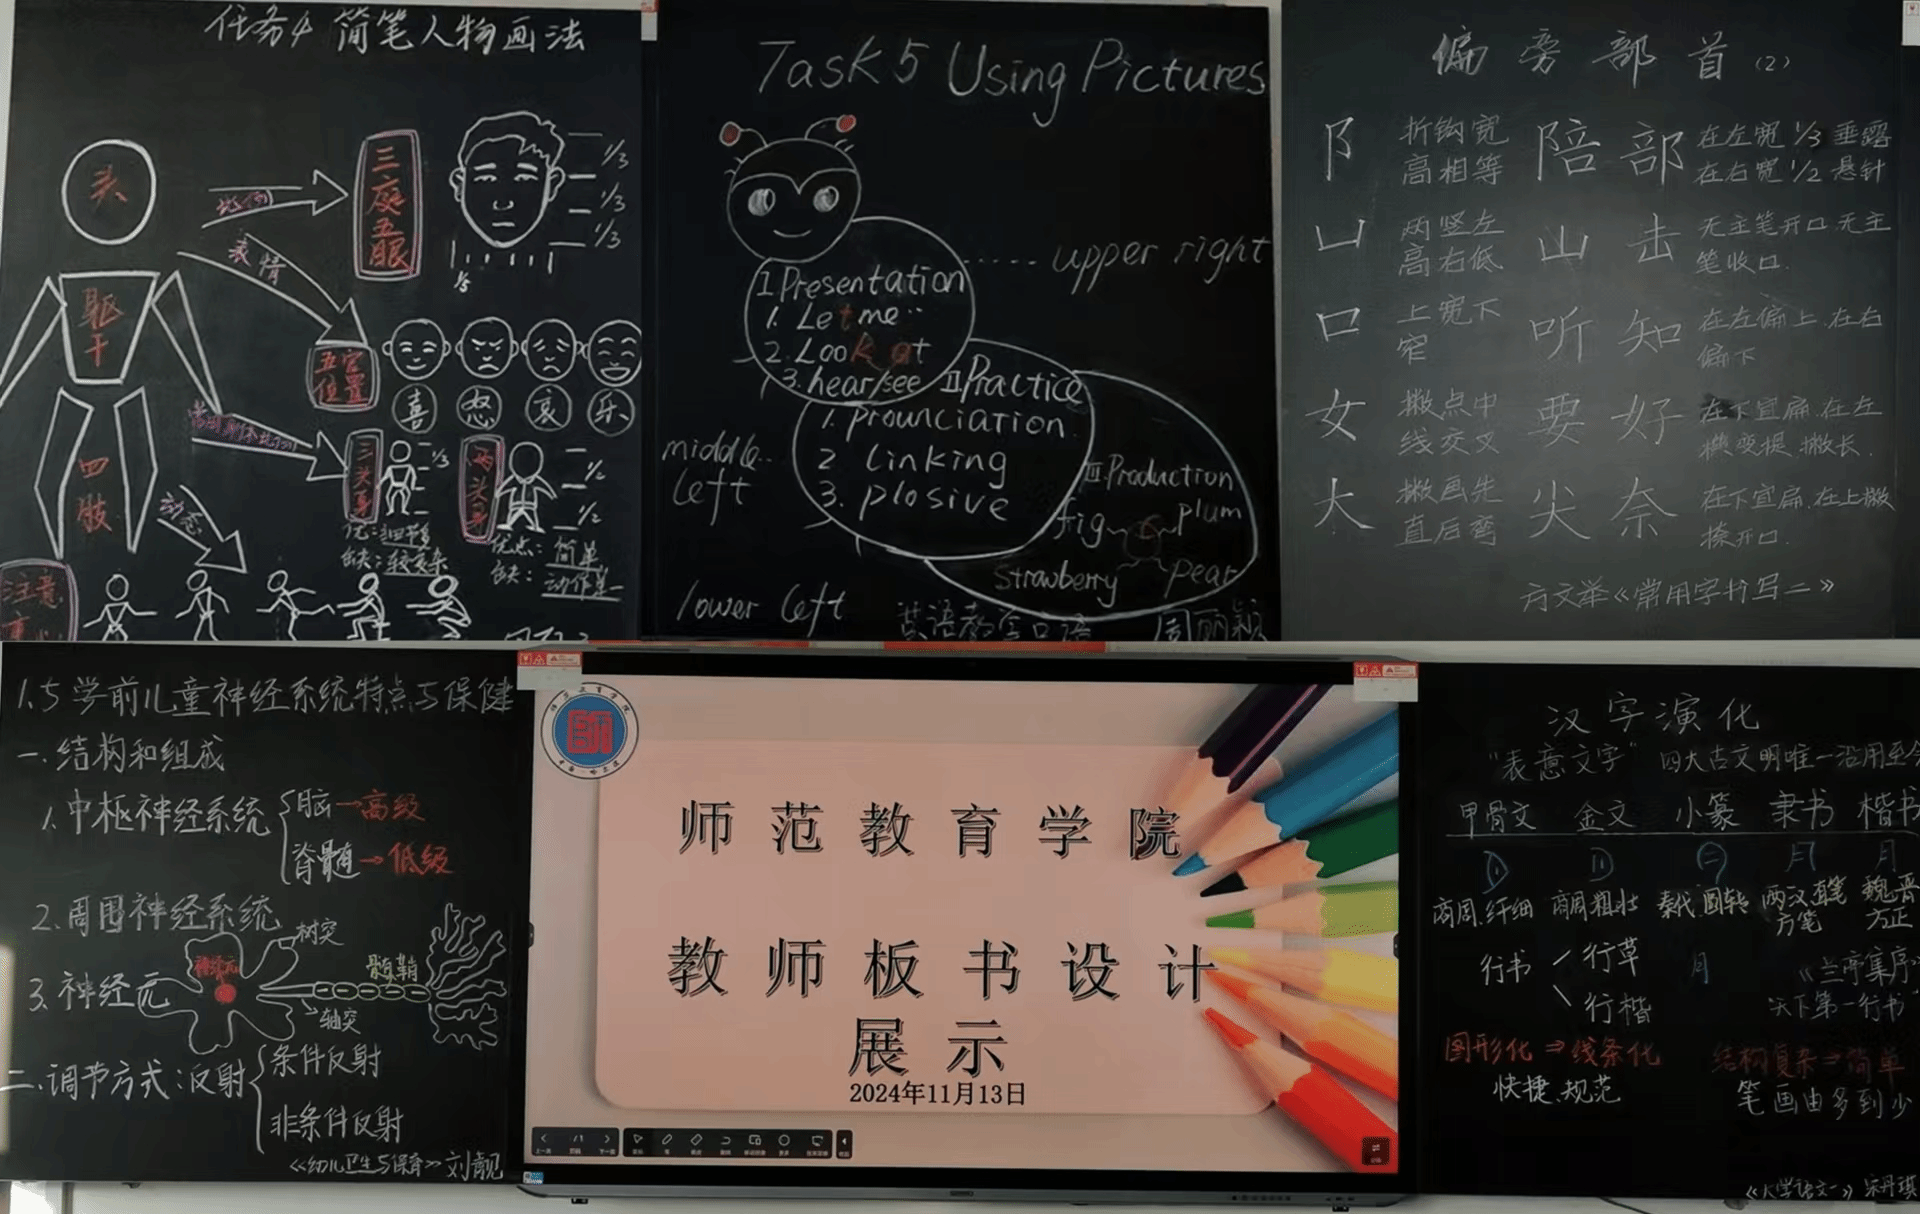 任务4 简笔人物画法
头
比例
三庭五眼
1/3
1/3
1/3
1/5
表情
躯干
五官位置
喜 怒 哀 乐
四肢
三头身
1/3
两头身
1/2
1/2
优:细节多
缺:较复杂
优点:简单
缺:动作单一
动态
注意
重心
Task 5 Using Pictures
I Presentation
upper right
1. Let me..
2. Look at
3. hear/see
II Practice
1. prounciation
2 linking
3. plosive
middle left
III. Production
fig plum
strawberry pear
lower left
英语教学口语 周丽颖
偏旁部首(2)
阝 折钩宽高相等 陪 部 在左宽1/3垂露 在右宽1/2悬针
凵 两竖左高右低 山 击 无主笔开口.无主笔收口.
口 上宽下窄 听 知 在左偏上.在右偏下
女 撇点中线交叉 要 好 在下宜扁.在左横变提.撇长.
大 撇画先直后弯 尖 奈 在下宜扁.在上撇捺开口.
方文举《常用字书写二》
1.5学前儿童神经系统特点与保健
一.结构和组成
1.中枢神经系统
脑→高级
脊髓→低级
2.周围神经系统
3.神经元
树突
神经元
髓鞘
轴突
二.调节方式:反射
条件反射
非条件反射
《幼儿卫生与保育》刘靓
师范教育学院
教师板书设计
展示
2024年11月13日
汉字演化
"表意文字" 四大古文明唯一沿用至今
甲骨文 金文 小篆 隶书 楷书
月 月
商周.纤细 商周粗壮 秦代.圆转 两汉.直笔方笔 魏晋方正
行书
行草
行楷
月
《兰亭集序》
"天下第一行书"
图形化⇒线条化
结构复杂⇒简单
快捷.规范
笔画由多到少
《大学语文一》宋丹琪